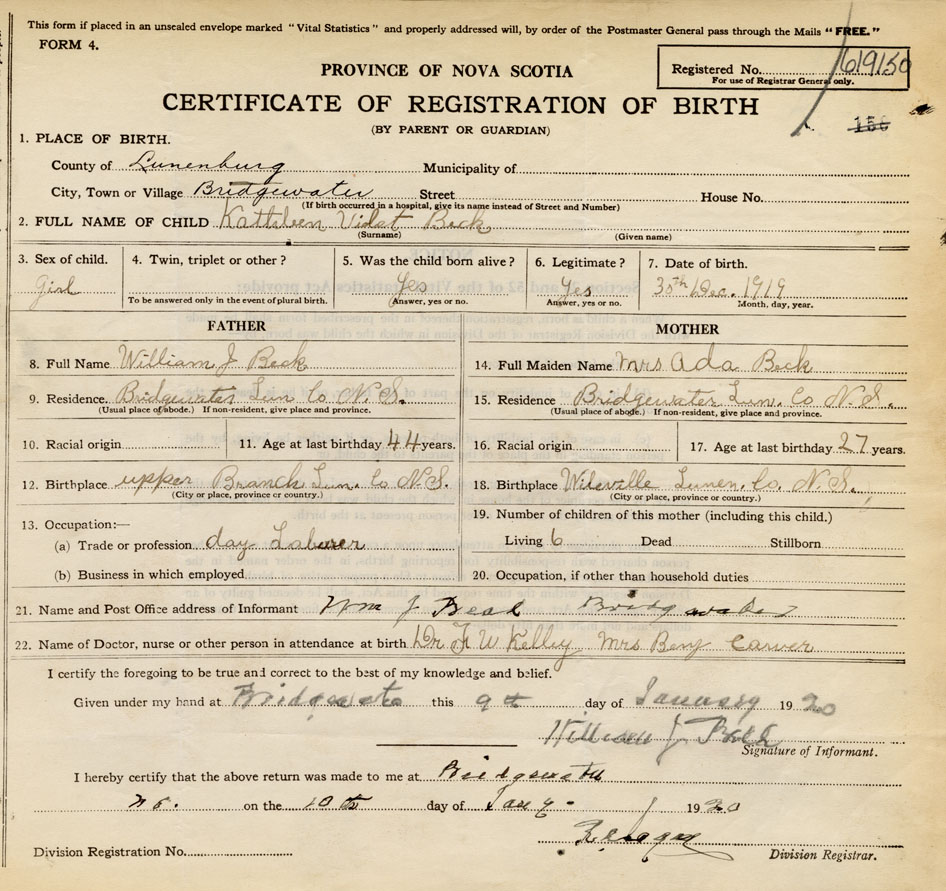 This form if placed in an unsealed envelope marked "Vital Statistics" and properly addressed will, by order of the Postmaster General pass through the Mails "FREE."
FORM 4.
Registered No. 619150
For use of Registrar General only.
PROVINCE OF NOVA SCOTIA
CERTIFICATE OF REGISTRATION OF BIRTH
(BY PARENT OR GUARDIAN)
156
1. PLACE OF BIRTH.
County of Lunenburg Municipality of
City, Town or Village Bridgewater Street House No.
(If birth occurred in a hospital, give its name instead of Street and Number)
2. FULL NAME OF CHILD Kathleen Beck
(Surname) (Given name)
3. Sex of child. 4. Twin, triplet or other? 5. Was the child born alive? 6. Legitimate? 7. Date of birth.
Girl Yes Yes 30th Dec. 1919
To be answered only in the event of plural birth. Answer, yes or no. Answer, yes or no. Month, day, year.
FATHER MOTHER
8. Full Name William J Beck 14. Full Maiden Name Mrs Ada Beck
9. Residence. Bridgewater Lun Co N.S. 15. Residence Bridgewater Lun. Co N.S.
(Usual place of abode.) If non-resident, give place and province. (Usual place of abode.) If non-resident, give place and province.
10. Racial origin 11. Age at last birthday 44 years. 16. Racial origin 17. Age at last birthday 27 years.
12. Birthplace upper Branch Lun. Co N.S. 18. Birthplace Wileville Lunen. Co. N.S.
(City or place, province or country.) (City or place, province or country.)
13. Occupation:— 19. Number of children of this mother (including this child.)
(a) Trade or profession day Laburer Living 6 Dead Stillborn
(b) Business in which employed 20. Occupation, if other than household duties
21. Name and Post Office address of Informant Wm J Beck Bridgewater
22. Name of Doctor, nurse or other person in attendance at birth Dr F W Kelley Mrs Benj Carver
I certify the foregoing to be true and correct to the best of my knowledge and belief.
Given under my hand at Bridgewater this 9th day of January 1920
William J Beck
Signature of Informant.
I hereby certify that the above return was made to me at Bridgewater
N S. on the 10th day of Jany 1920
Division Registration No. Division Registrar.